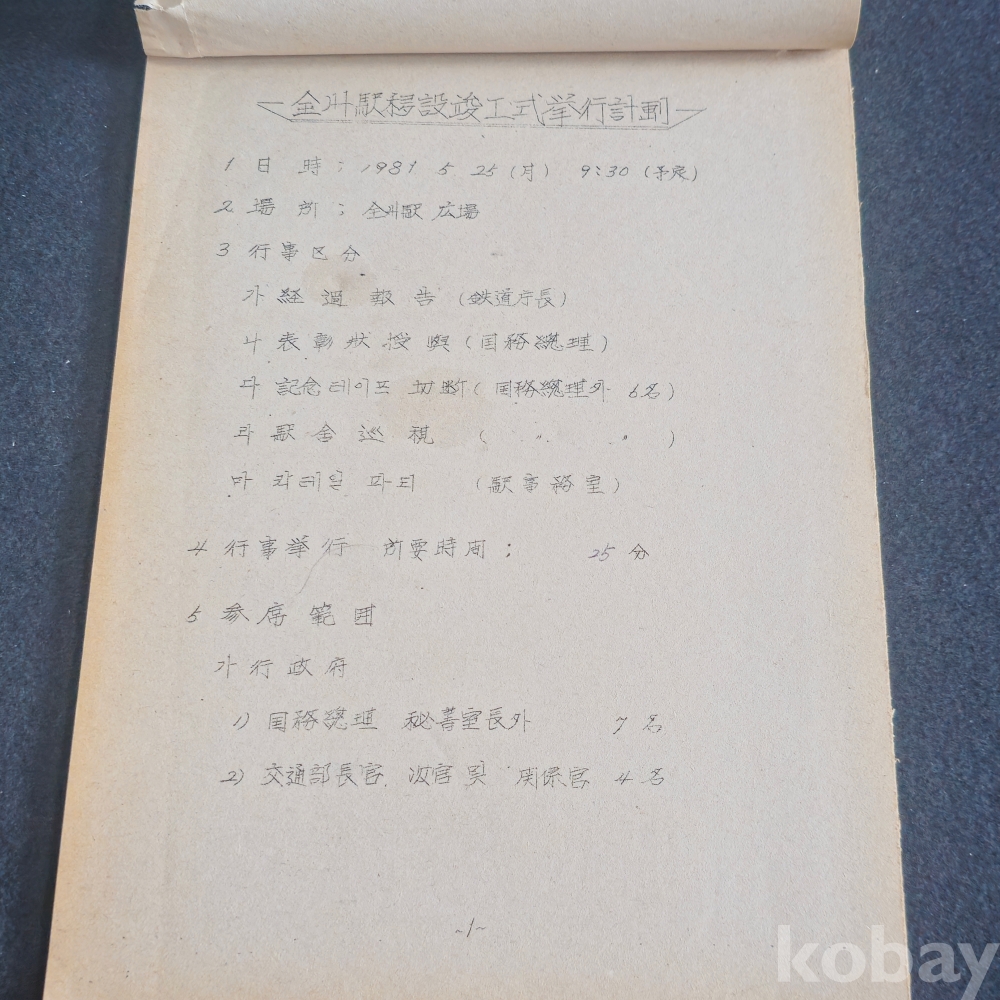 全州駅移設竣工式挙行計劃
1 日 時 ; 1981 5 25 (月) 9:30 (予定)
2 場 所 ; 全州駅 広場
3 行事区分
가 経 過 報 告 (鉄道庁長)
나 表彰状授與 (国務總理)
다 記念테이프 切断 (国務總理外 6名)
라 駅舎巡視 ( 〃 〃 )
마 칵테일 파티 (駅事務室)
4 行事挙行 所要時間 ; 25 分
5 参席範囲
가 行政府
1) 国務總理 秘書室長外 7 名
2) 交通部長官 次官 및 関係官 4 名
~1~
kobay